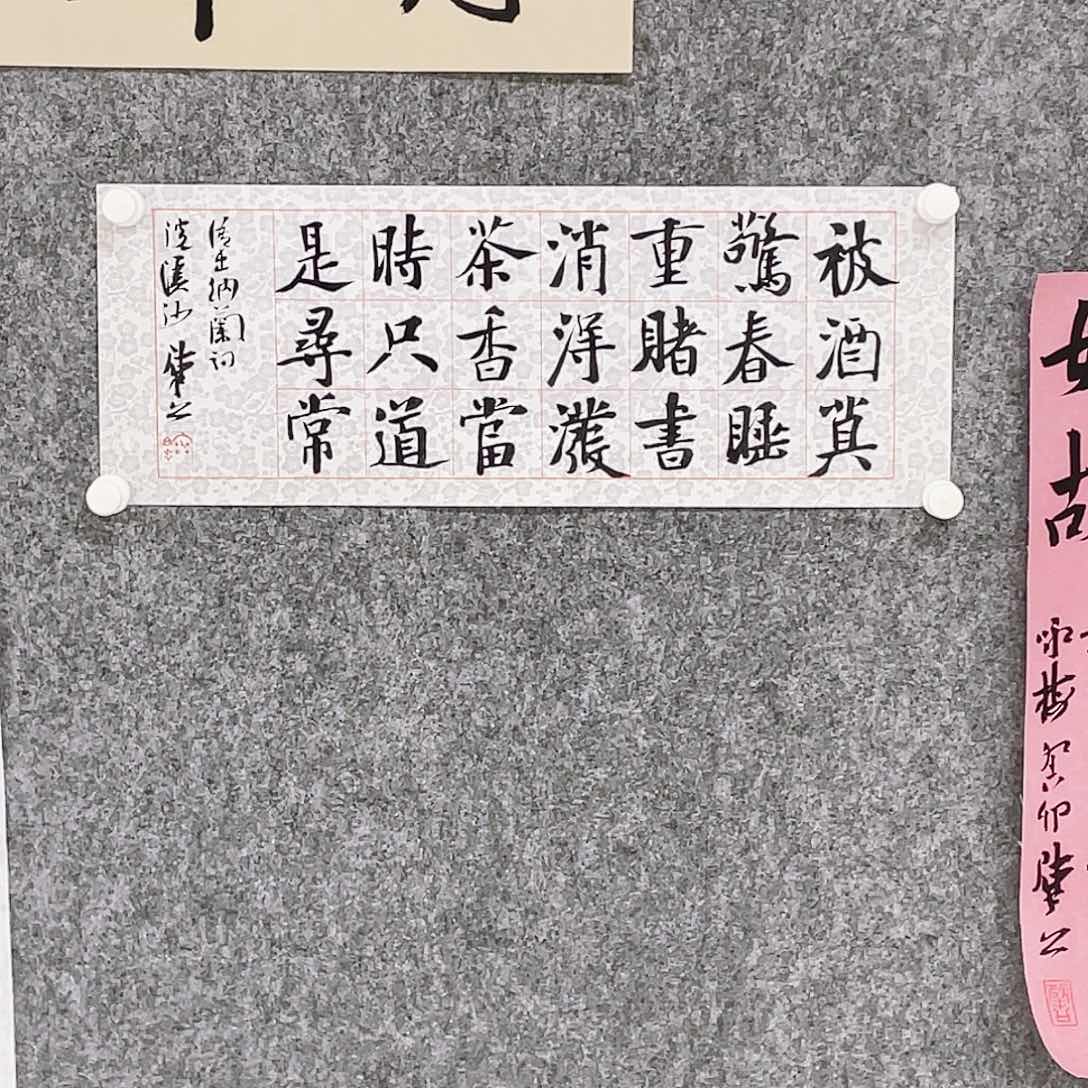 被酒莫
驚春睡
重賭書
消得潑
茶香當
時只道
是尋常
納蘭詞
浣溪沙
如故
咏梅 癸卯